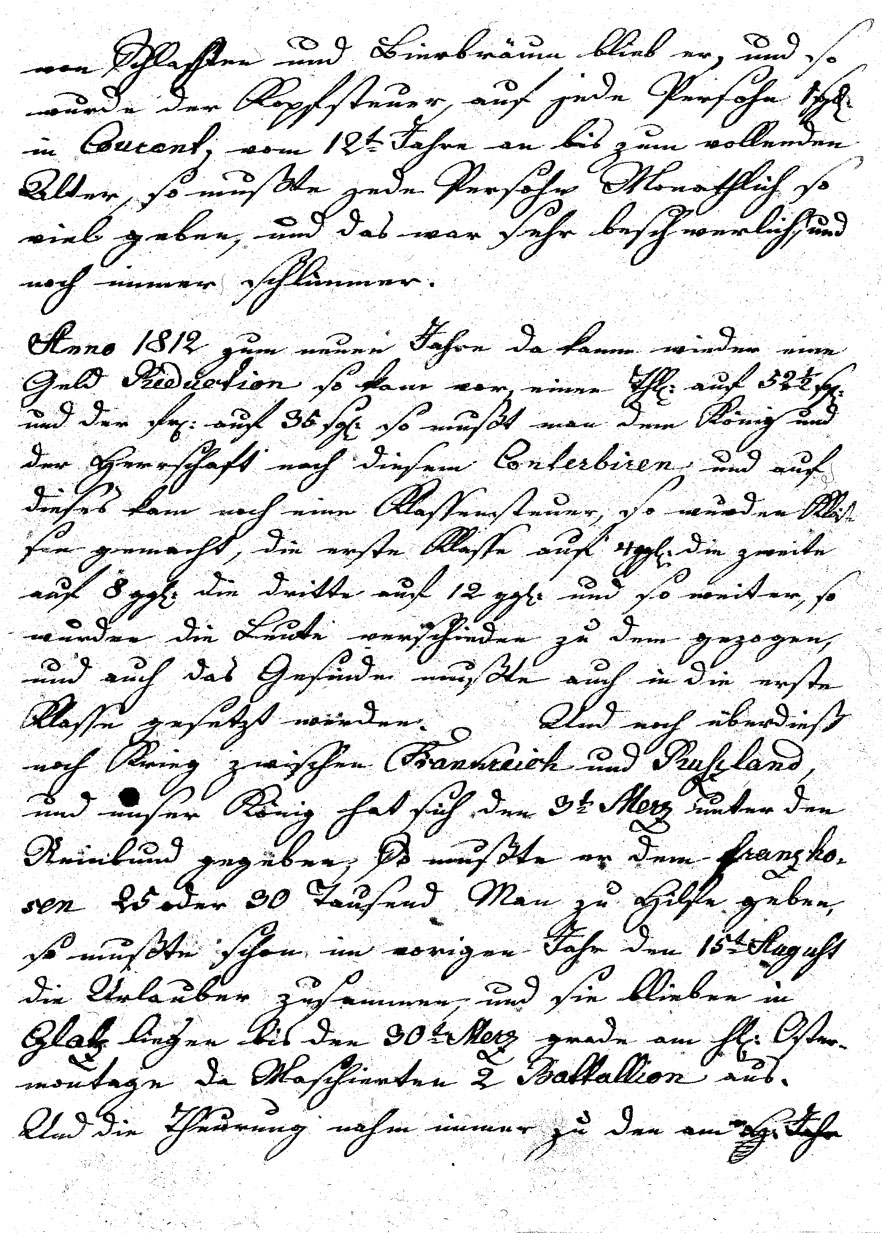 von Schlachten und Bierbräuen blieb er, und so
wurde der Kopfsteuer, auf jede Persohn
in Courent, vom 12t Jahre an bis zum vollenden
Alter, so mußte jede Persohn Monathlich so
viel geben, und das war sehr beschwerlich, und
noch immer schlimmer.
Anno 1812 zum neuen Jahre da kamm wieder eine
Geld Reduction so kam vor, einen Thl: auf 52½ sgl:
und der auf 35 sgl: so mußt man dem König und
der Herrschaft nach diesem Conterbiren und auf
dieses kam noch eine Klassensteuer, so wurden Klas-
sen gemacht, die erste Klasse auf 4 ggl: die zweite
auf 8 ggl: die dritte auf 12 ggl: und so weiter, so
wurden die Leute verschieden zu dem gezogen,
und auch das Gesinde mußte auch in die erste
Klasse gesetzt werden. Und noch überdieß
noch Krieg zwischen Frannreich und Rußland,
und unser König hat sich den 3t Merz unter den
Reinbund gegeben, So mußte er dem franzho-
sen 25 oder 30 Tausend Man zu Hilfe geben,
so mußte schon im vorigen Jahr den 15t August
die Urlauber zusammen, und sie blieben in
Glatz liegen bis den 30t Merz grade am hl: Oster-
montage da Maschierten 2 Battallion aus.
Und die Theurung nahm immer zu den am Jahr